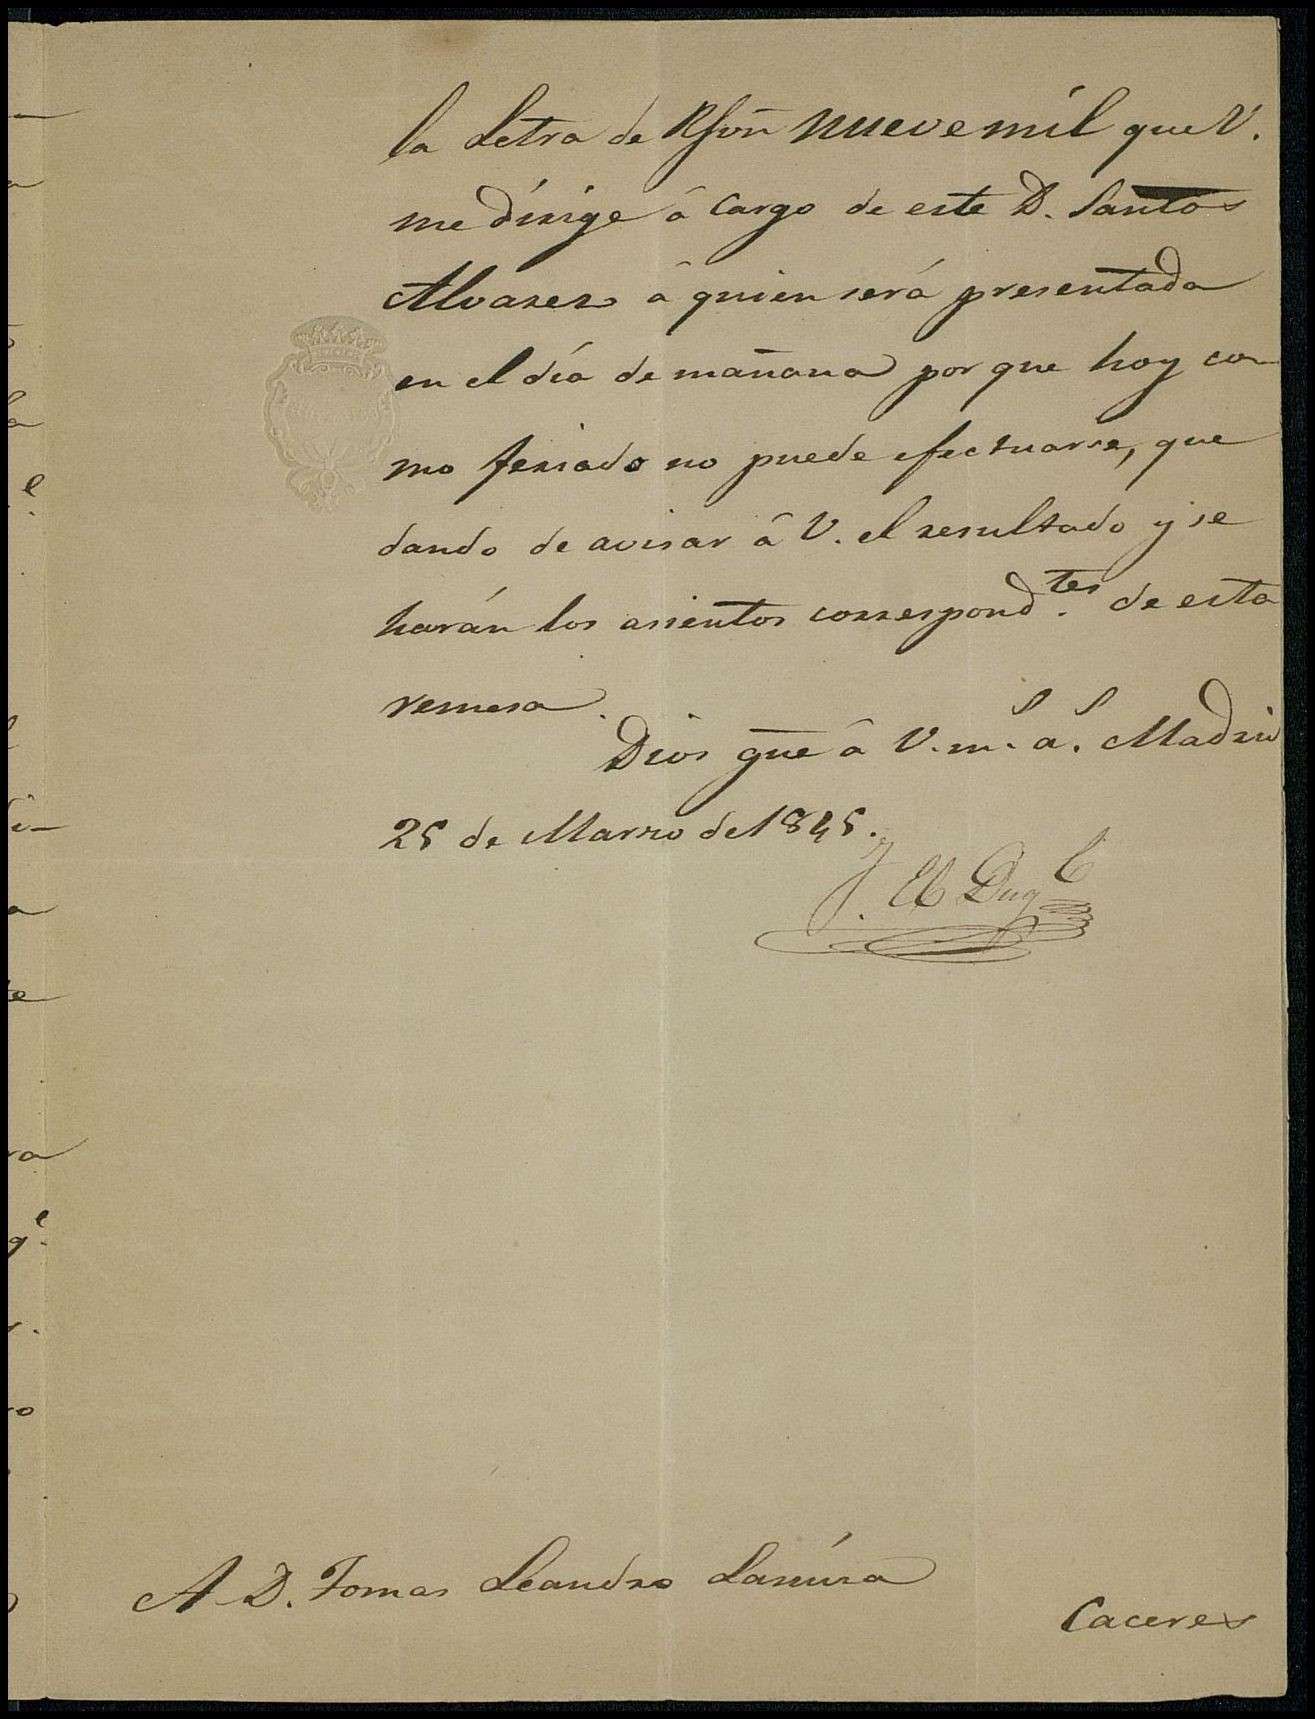 la Letra de Rsvñ nueve mil que V.
me dirige â cargo de este D. Santos
Alvarez â quien será presentada
en el día de mañana por que hoy co
mo feriado no puede efectuarse, que
dando de avisar â V. el resultado y se
harán los asientos correspond.tes de esta
remesa.
Dios gue â V. m.s a.s Madrid
25 de Marzo de 1845.
El Duq
A D. Tomas Leandro
Caceres